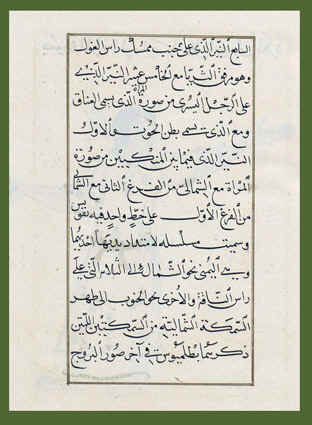 السابع النير الذي على جنب ممسك راس الغول
وهو مرفق الثريا مع الخامس عشر النير الذي
على الرجل اليسرى من صورة الذي يسمى العناق
ومع الذي تسمى بطن الحوت و الاول
النير الذي فيما بين المنكبين من صورة
المراة مع الشمالي من الفرغ الثاني مع الشمالي
من الفرغ الاول على خط واحد فيه تقويس
وسميت مسلسله لامتداد يديها احديهما
وهي اليمنى نحو الشمال الى الثلاثة التي على
راس الناقة والاخرى نحو الجنوب الى ظهر
السمكة الشمالية من السمكتين اللتين
ذكرهما بطلميوس في آخر صور البروج